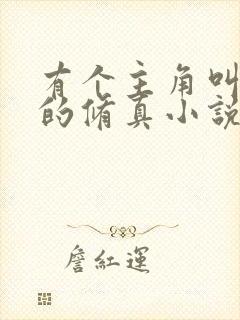 有个主角叫
的修真小說
詹紅運